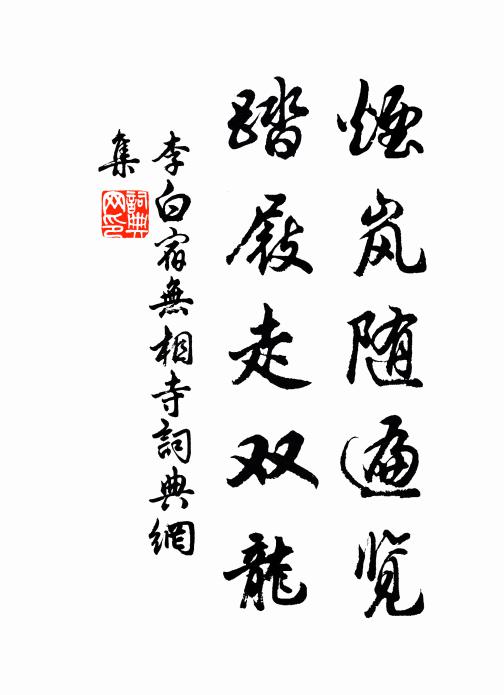 煙岚随遍览
踏屐走双龍
李白宿無相寺詞典網
集
詞典网印